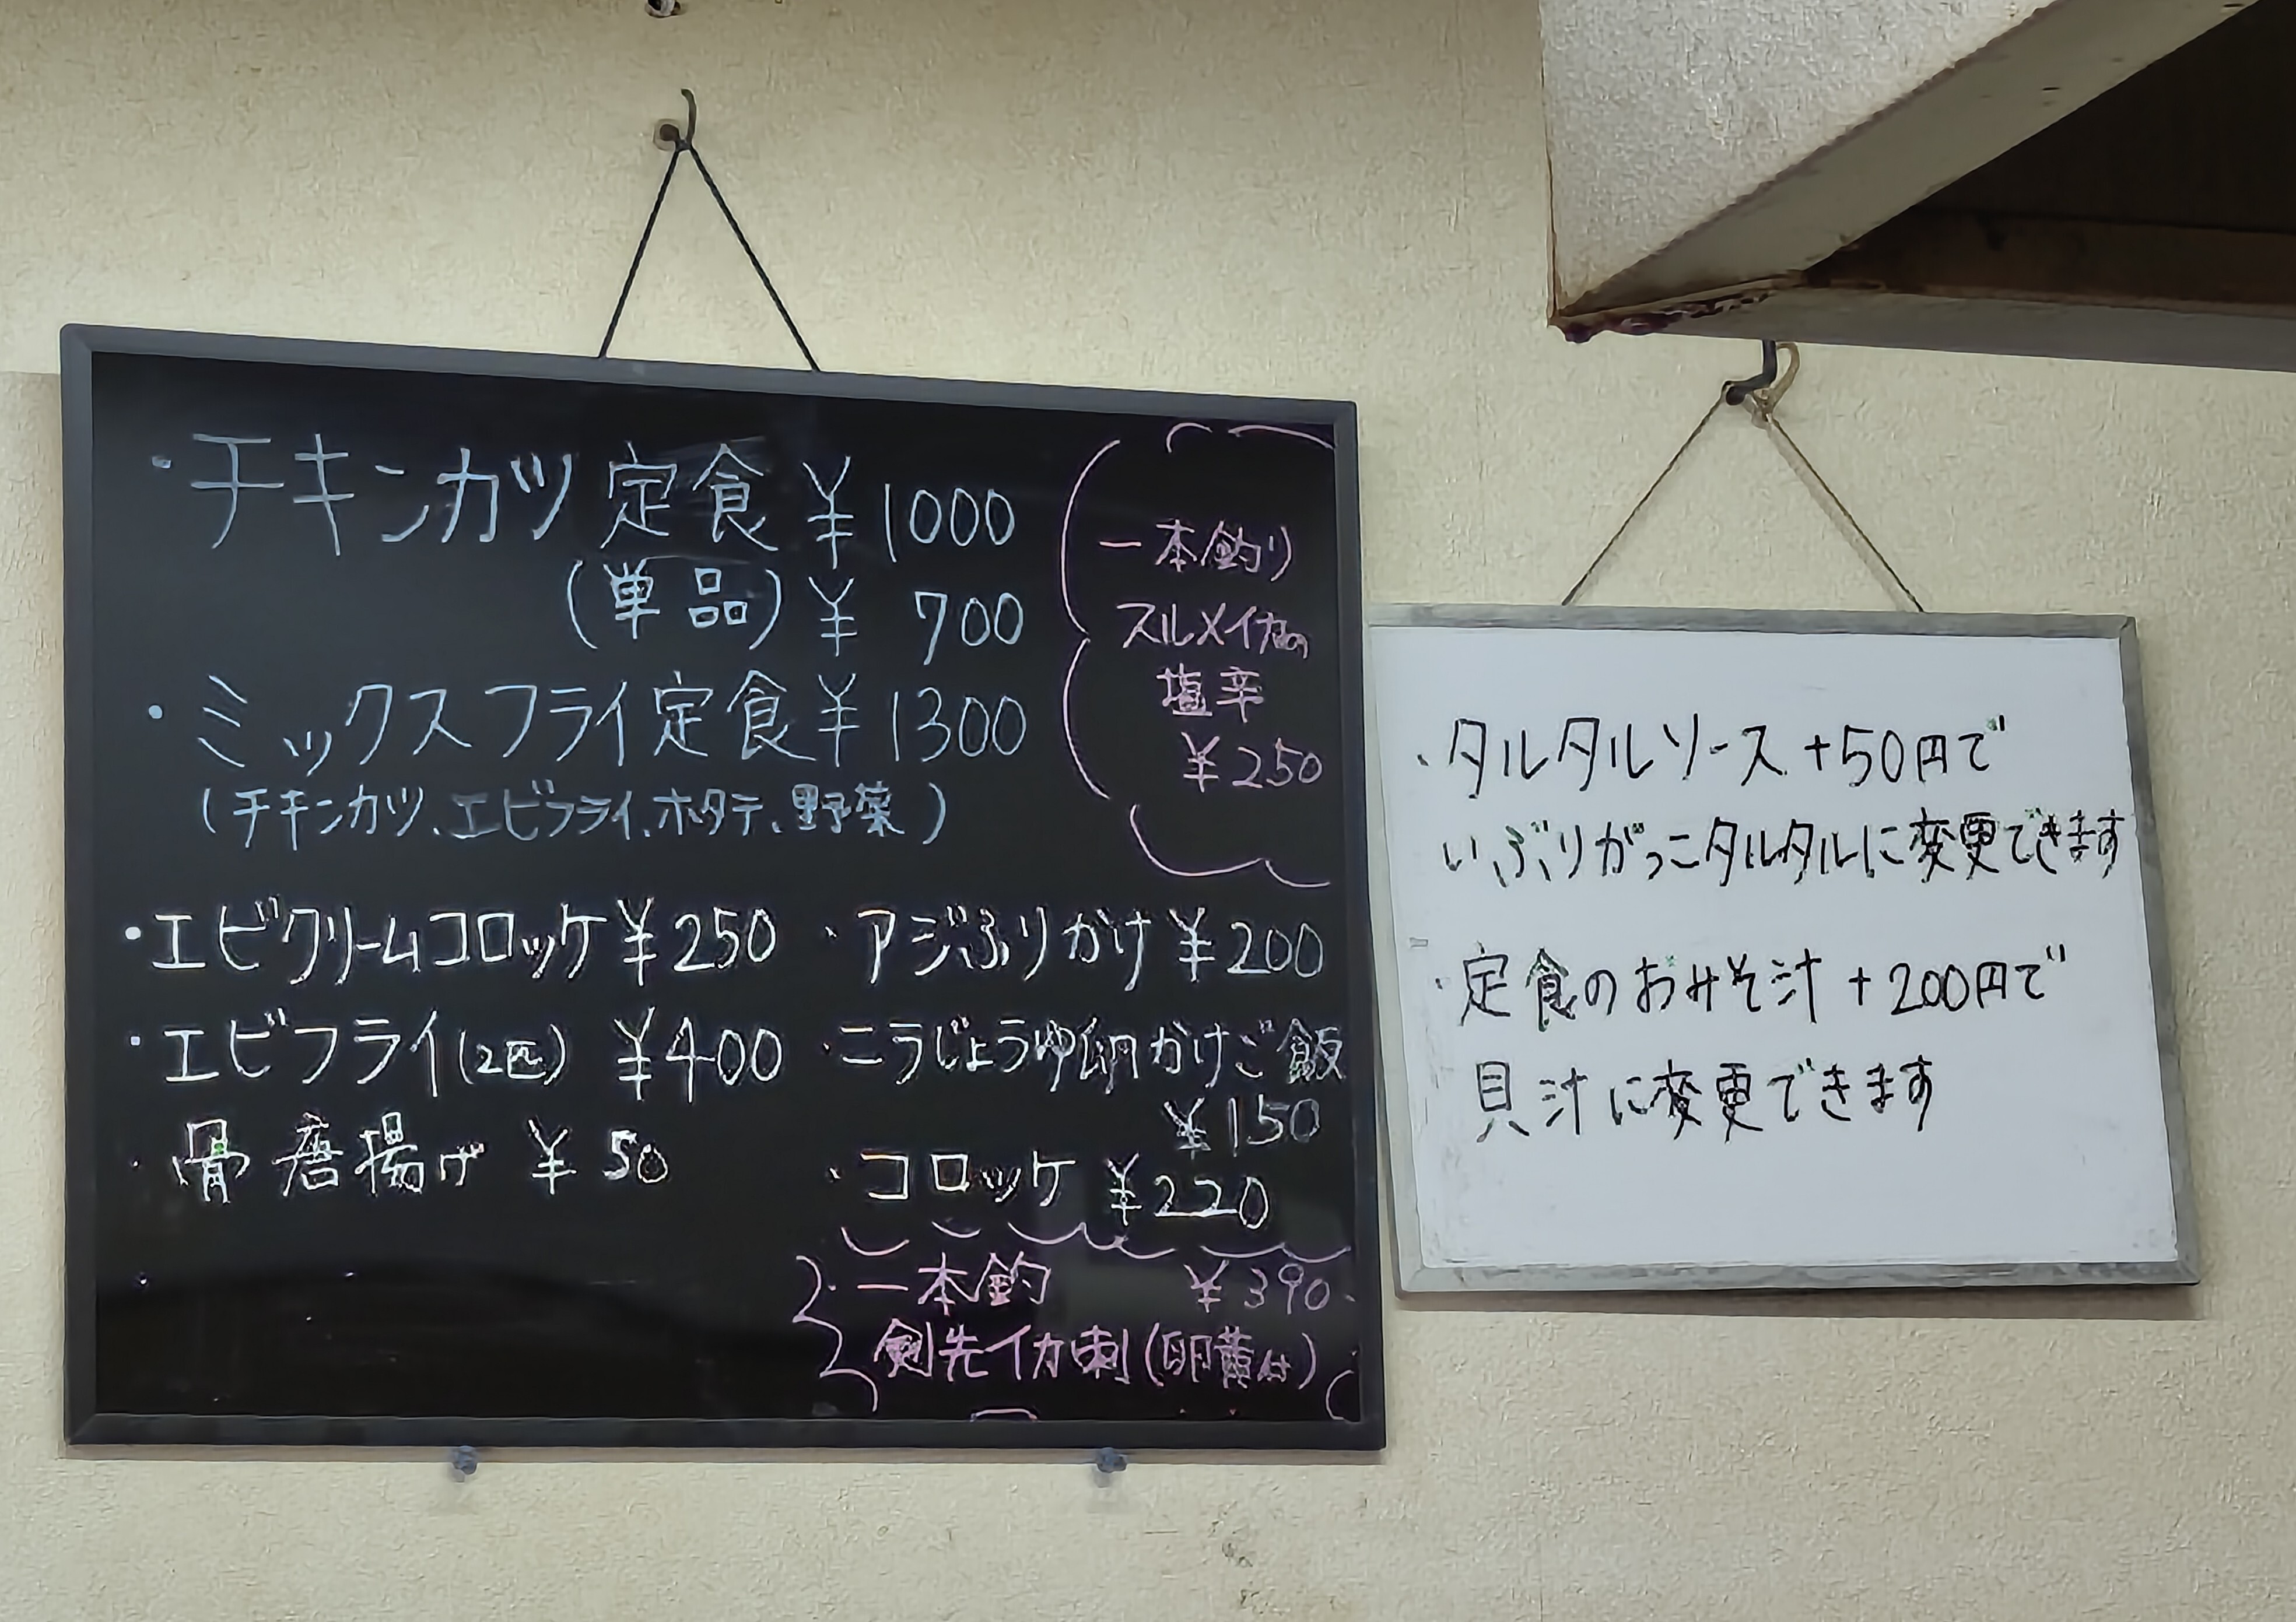 ・チキンカツ定食 ¥1000
(単品) ¥ 700
・ミックスフライ定食 ¥1300
(チキンカツ、エビフライ、ホタテ、野菜)
一本釣り
スルメイカの
塩辛
¥250
・エビクリームコロッケ ¥250
・エビフライ(2匹) ¥400
・骨唐揚げ ¥50
・アジふりかけ ¥200
・ニラじょうゆ卵かけご飯
¥150
・コロッケ ¥220
・一本釣 ¥390
剣先イカ刺(卵黄付)
・タルタルソース +50円で
いぶりがっこタルタルに変更できます
・定食のおみそ汁 +200円で
貝汁に変更できます